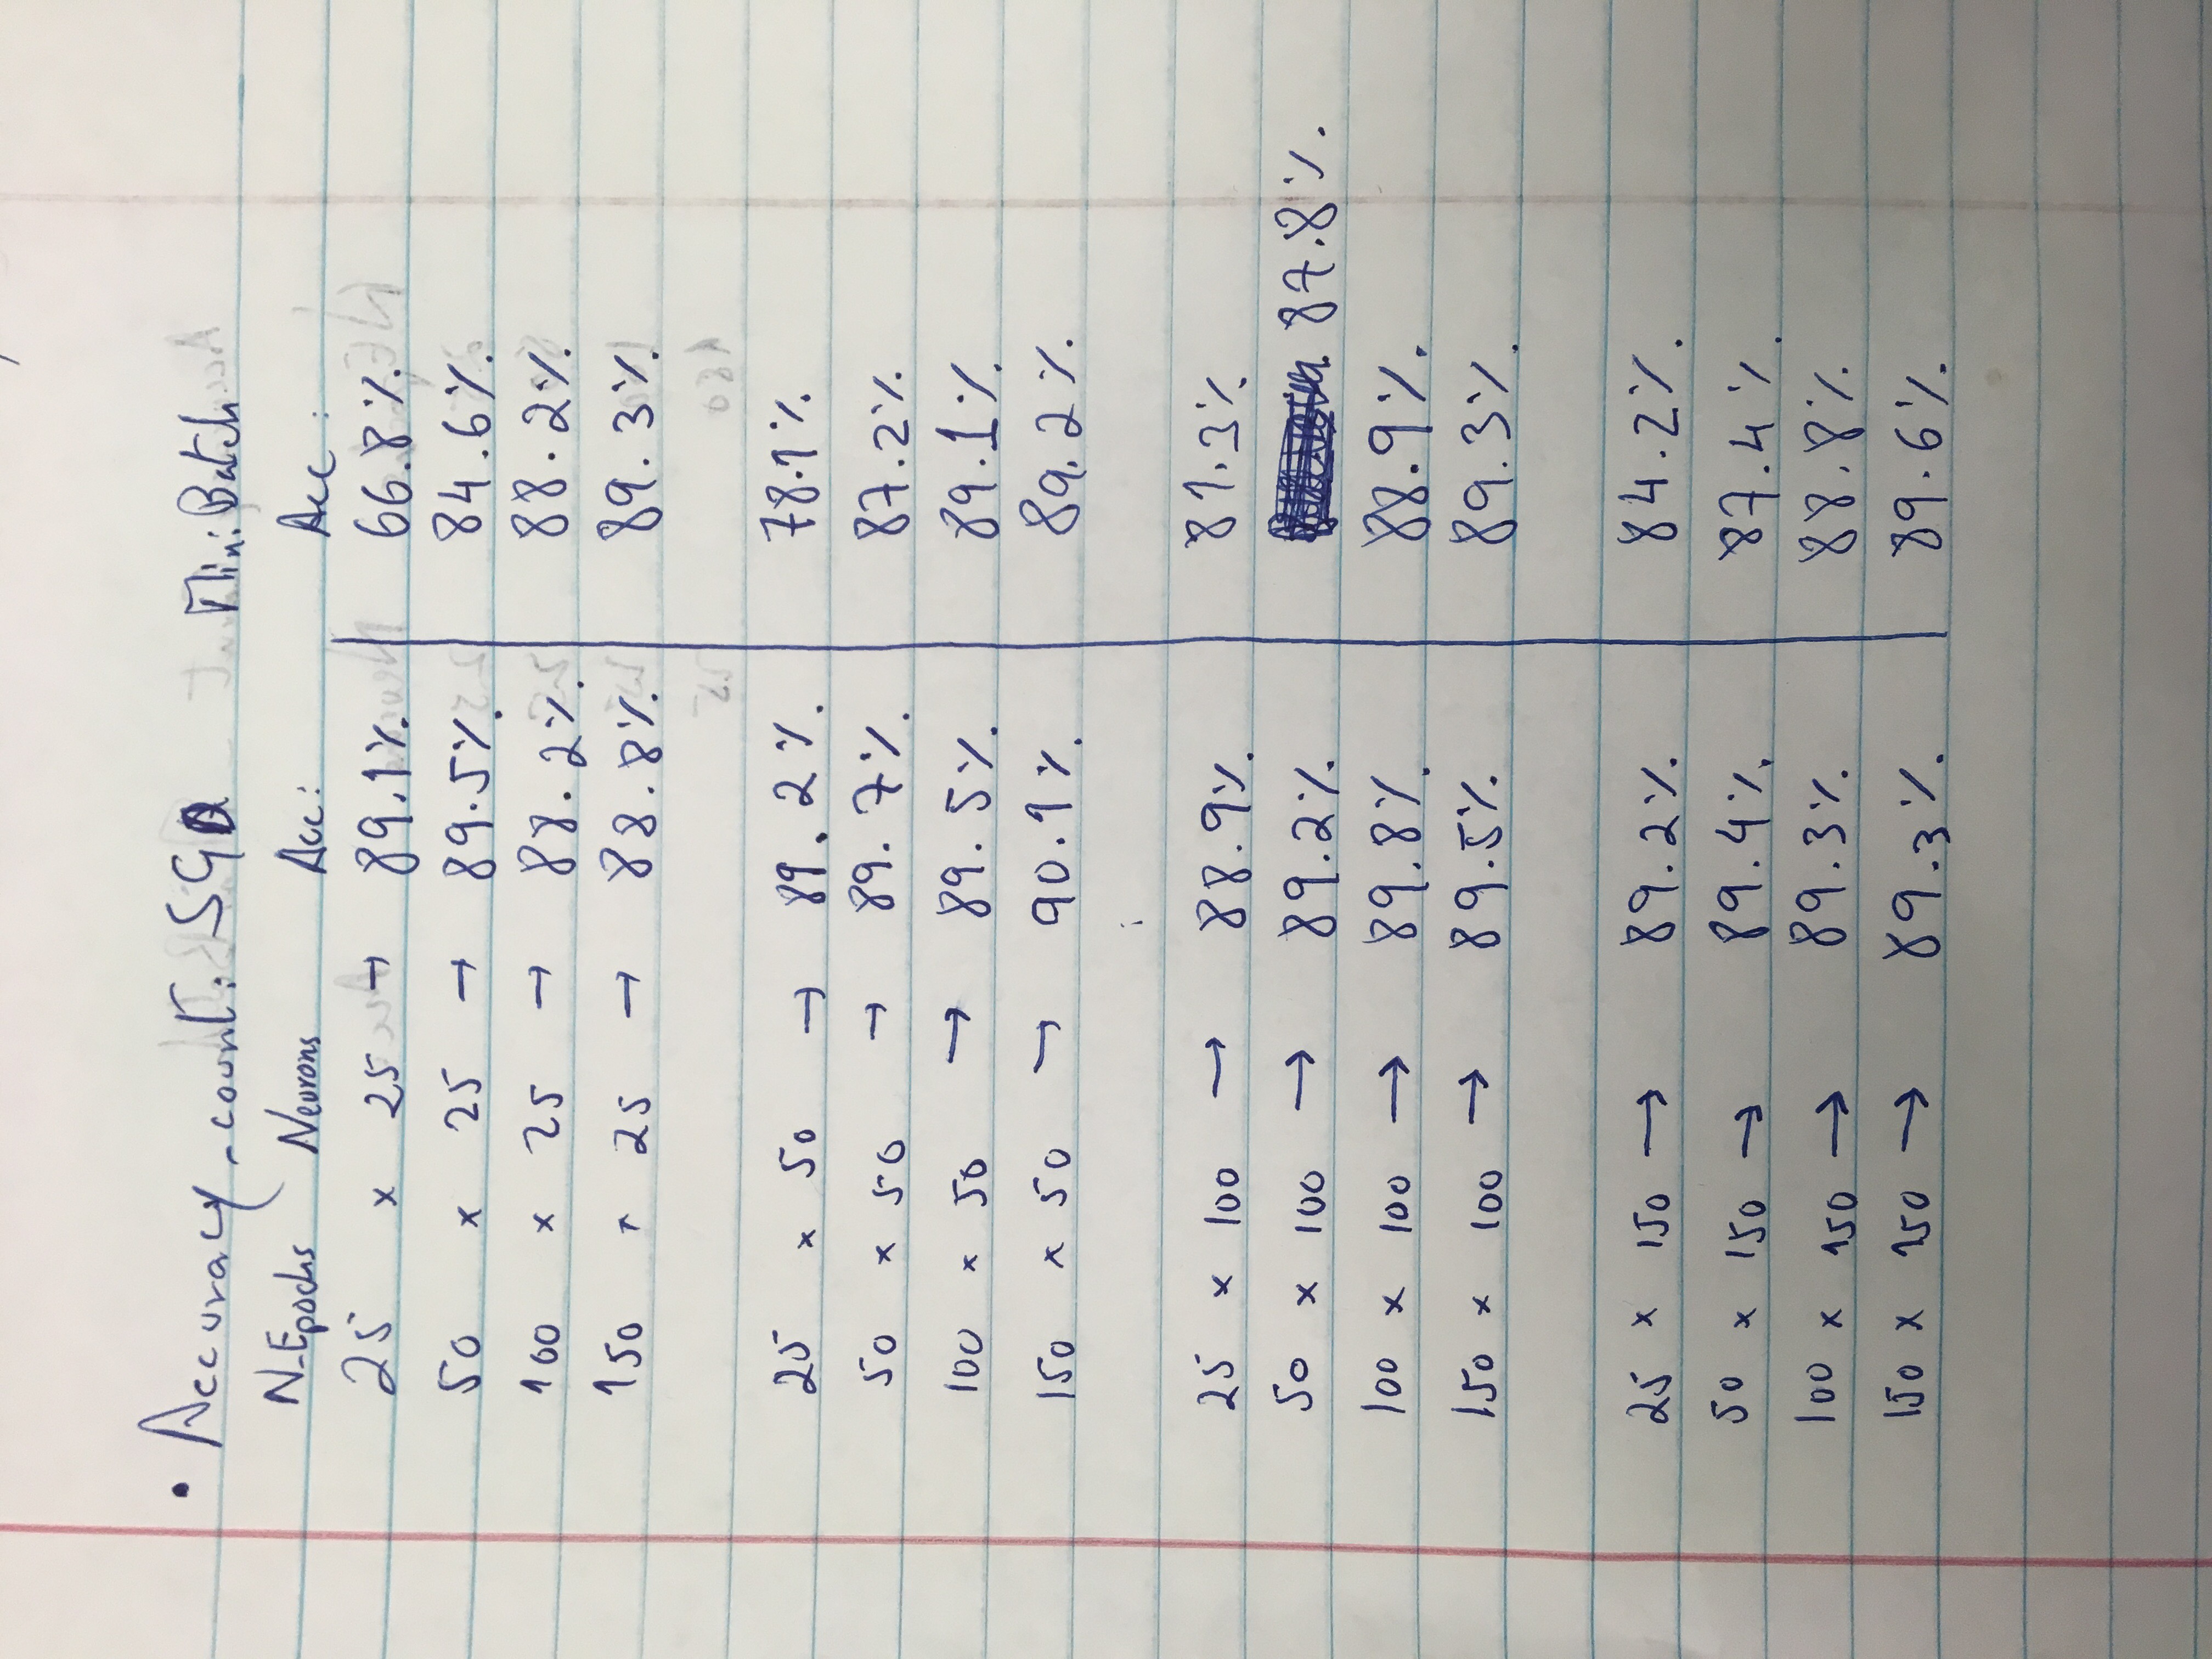 • Accuracy_count: SGD Mini Batch
N-Epochs Neurons Acc: Acc:
25 x 25 → 89.1% 66.8%
50 x 25 → 89.5% 84.6%
100 x 25 → 88.2% 88.2%
150 x 25 → 88.8% 89.3%
25 x 50 → 89.2% 78.1%
50 x 50 → 89.7% 87.2%
100 x 50 → 89.5% 89.1%
150 x 50 → 90.1% 89.2%
25 x 100 → 88.9% 81.3%
50 x 100 → 89.2% 87.8%
100 x 100 → 89.8% 88.9%
150 x 100 → 89.5% 89.3%
25 x 150 → 89.2% 84.2%
50 x 150 → 89.4% 87.4%
100 x 150 → 89.3% 88.8%
150 x 150 → 89.3% 89.6%